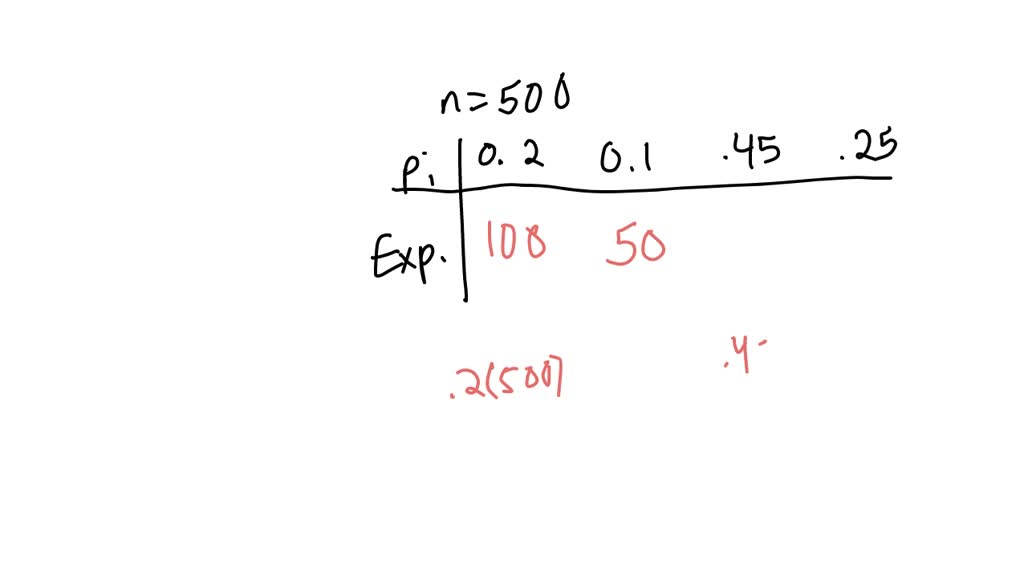 n=500
pi 0.2 0.1 .45 .25
Exp. 100 50
.2(500) .4